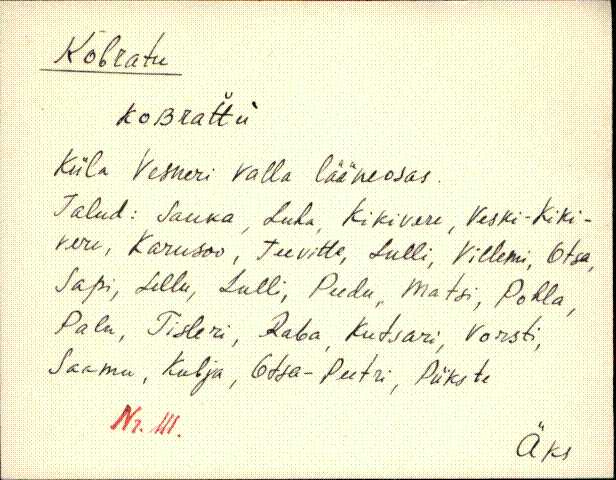 Kõbratu
koBrattu
Küla Vesneri valla lääneosas.
Talud: Sauna, Luha, Kikivere, Veski-Kiki-
vere, Karusoo, Teevitte, Lulli, Villemi, Otsa,
Sapi, Lellu, Lulli, Peedu, Matsi, Pohla,
Palu, Tisleri, Raba, Kutsari, Vorsti,
Saamu, Kubja, Otsa-Peetri, Pükste
Nr. III.
Äks